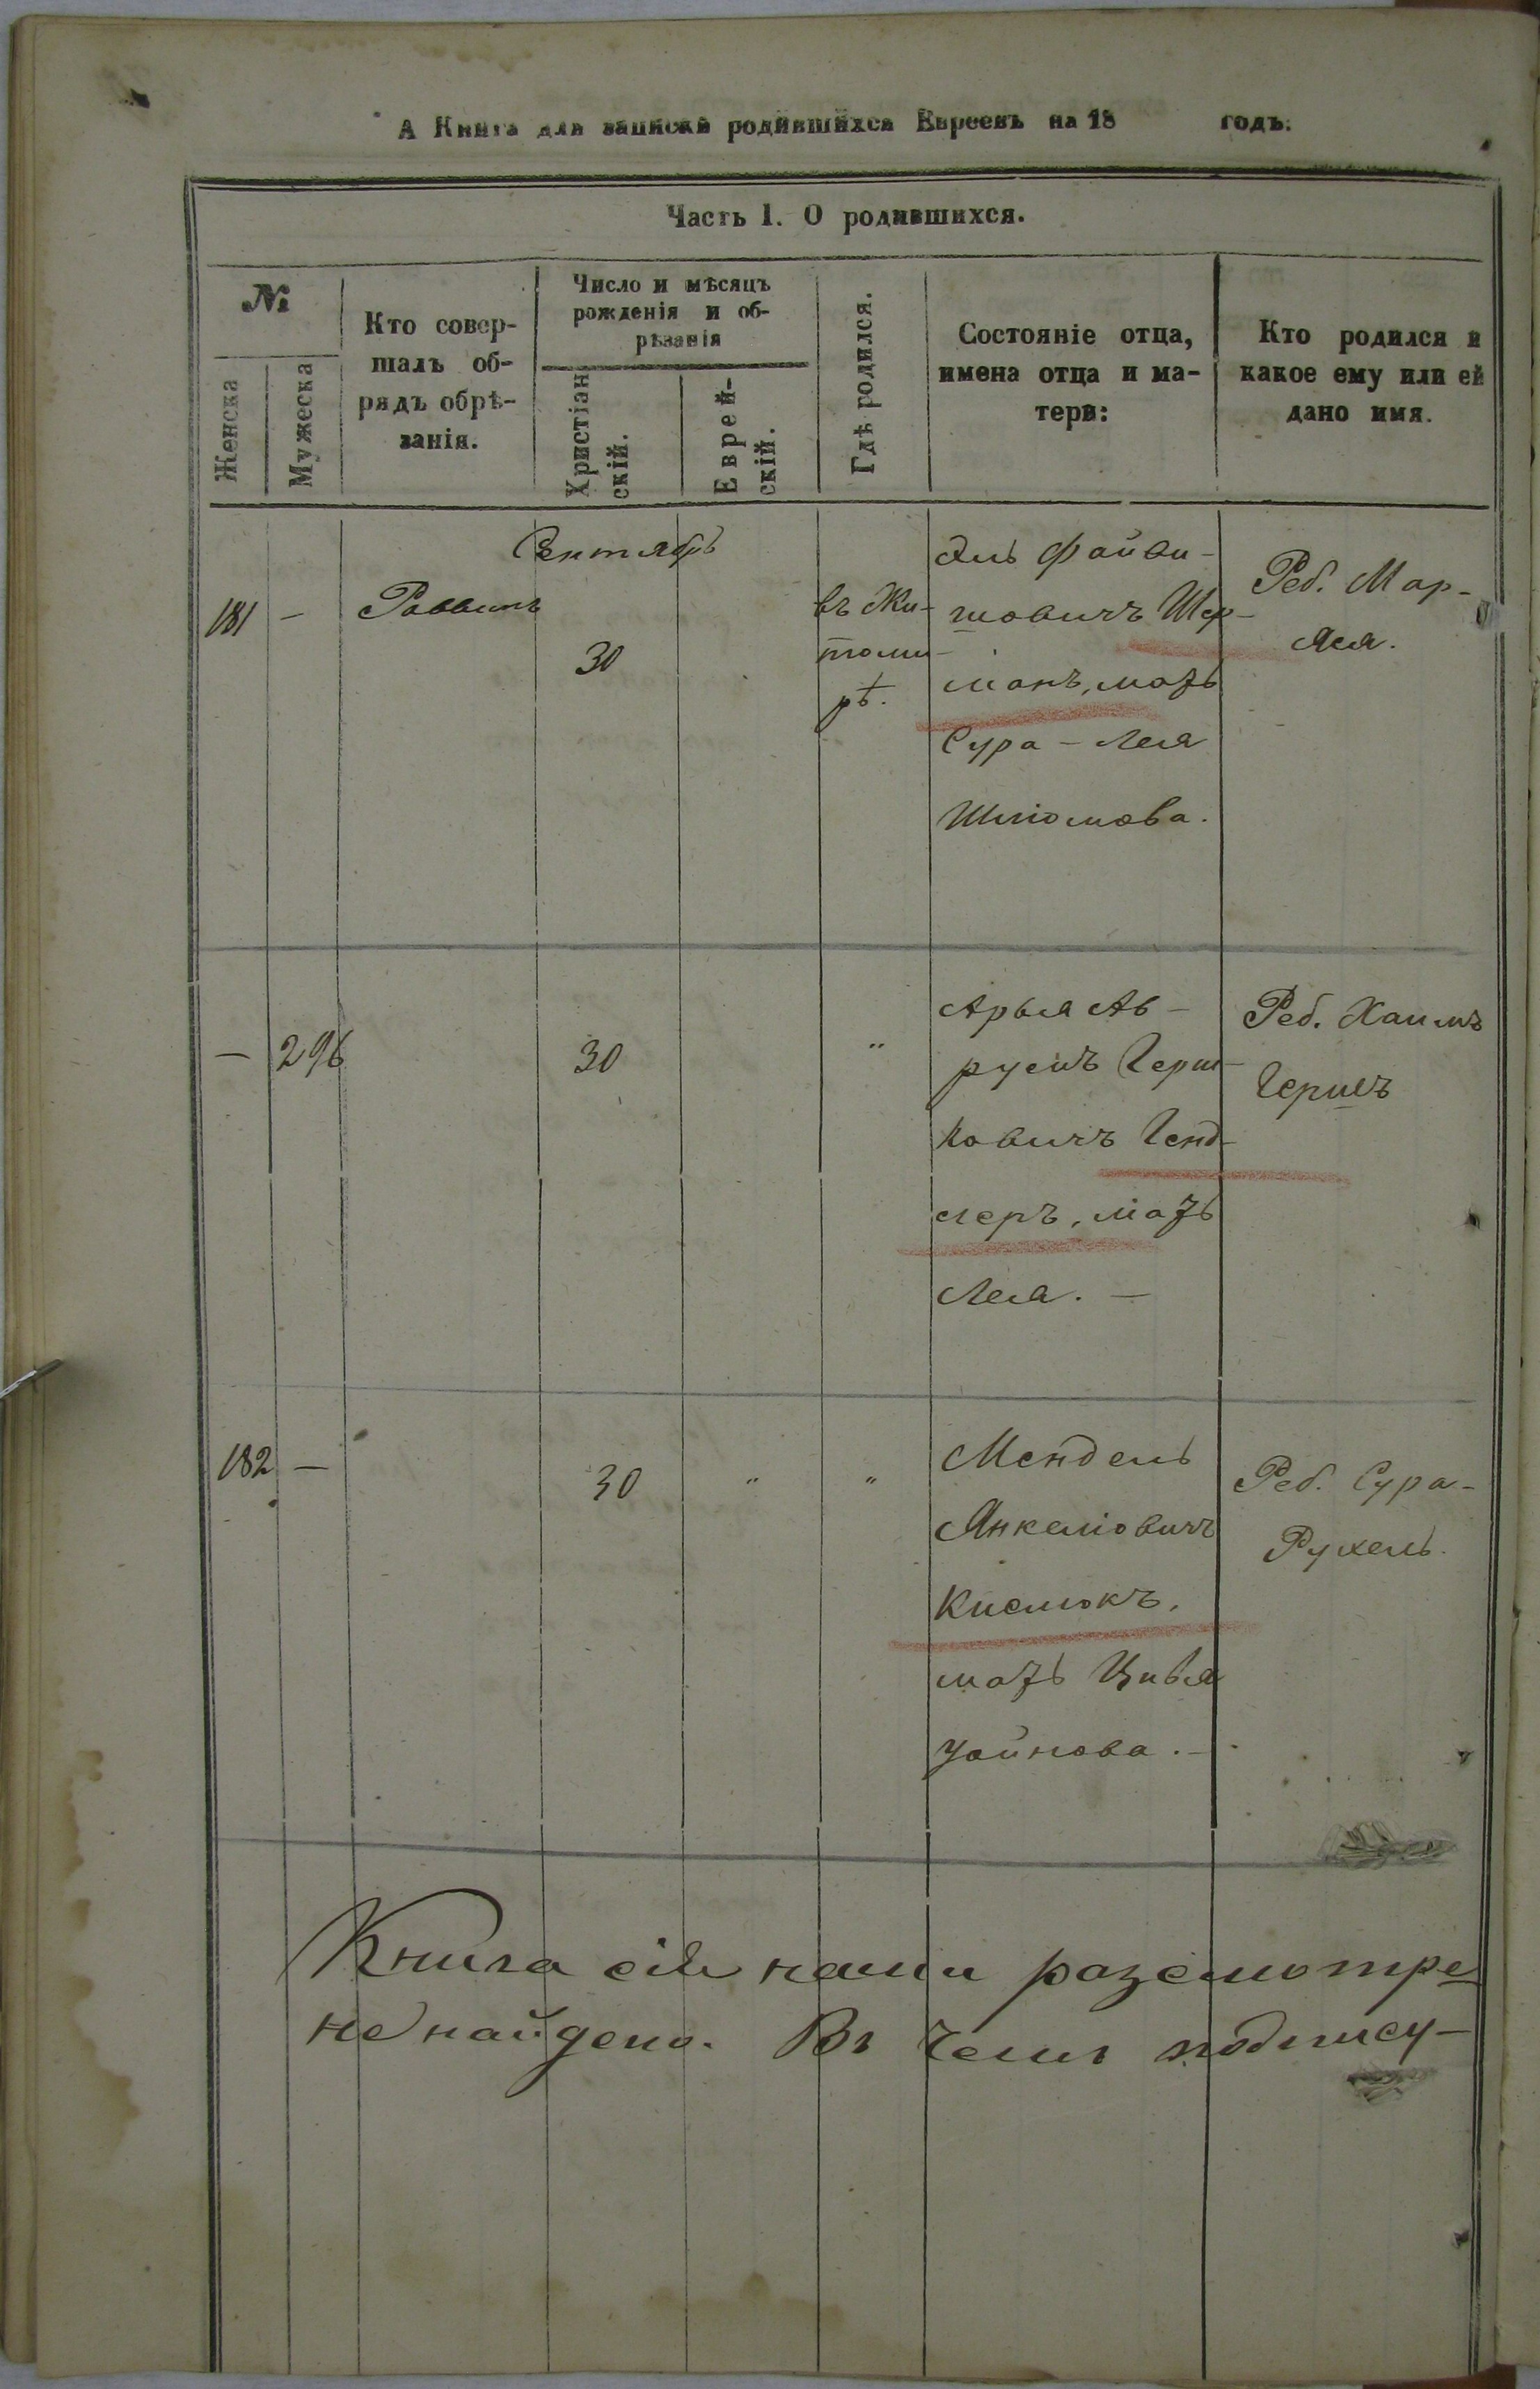 А Книга для записки родившихся Евреевъ на 18 годъ.
Часть I. О родившихся.
№
Женска
Мужеска
Кто совер-
шалъ об-
рядъ обрѣ-
занія.
Число и мѣсяцъ
рожденія и об-
рѣзанія
Христіан
скій.
Еврей-
скій.
Гдѣ родился.
Состояніе отца,
имена отца и ма-
тери:
Кто родился и
какое ему или ей
дано имя.
Сентябрь
181 — Раввинъ
30
въ Жи-
томи-
рѣ.
Эль Файви-
шовичъ Шер-
манъ, мать
Сура - Лея
Шліомова.
Реб. Мар-
яся.
— 296 30 "
Арья Ав-
румъ Герш-
ковичъ Генд-
леръ, мать
Лея. —
Реб. Хаимъ
Гершъ
182 — 30 " "
Мендель
Янкеліовичъ
Кислюкъ,
мать Цивья
Реб. Сура-
Рухель.
Книга сія нами разсмотре
не найдено. Въ чемъ подпису-